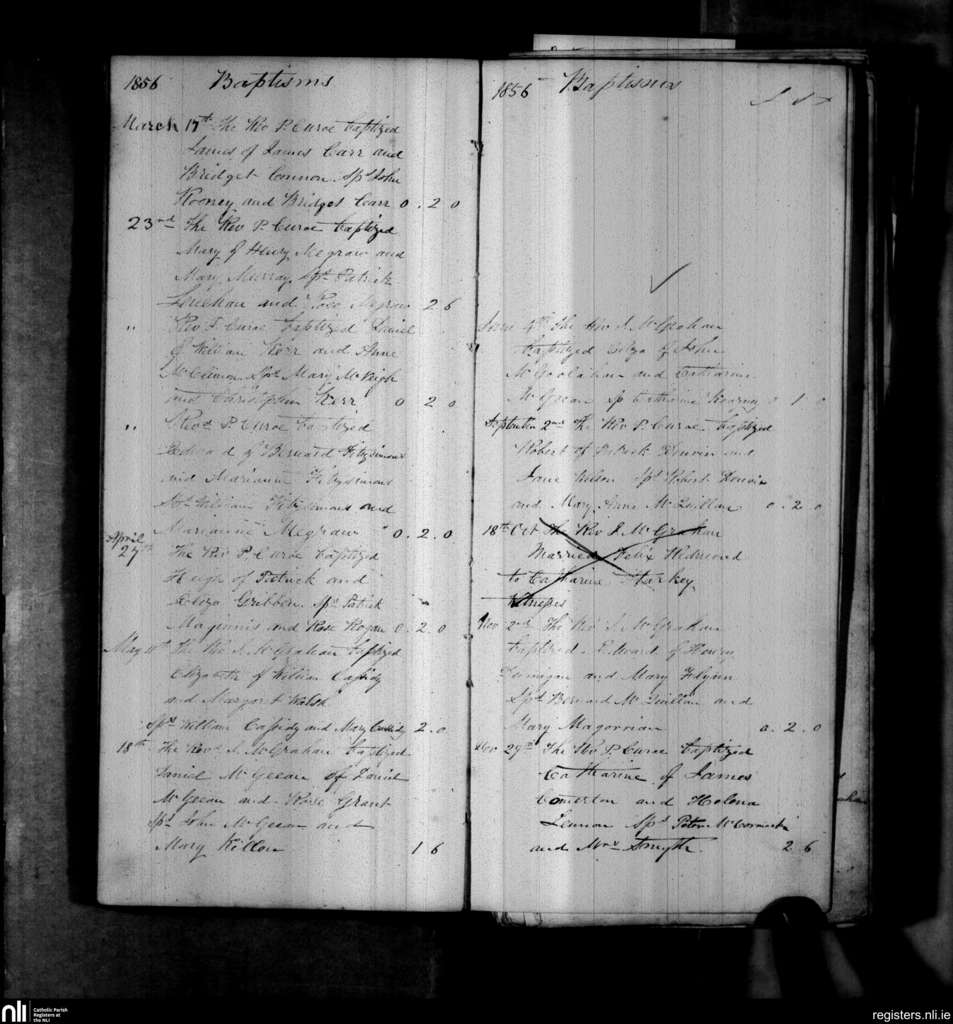 1856 Baptisms
March 17th The Rev P. Curoe baptized
James of James Carr and
Bridget Connon. Sps John
Rooney and Bridget Carr 0. 2 0
23rd The Rev P. Curoe baptized
Mary of Henry Megraw and
Mary Murray, Sps Patrick
and Rose Megraw 2 6
" Rev P. Curoe baptized Daniel
of William Kerr and Anne
Sps Mary McVeigh
and Kerr 0 2 0
" Revd P. Curoe baptized
Edward of Bernard Fitzsimons
and Marianne Fitzsimons
Sps William Fitzsimons and
Marianne Megraw 0. 2. 0
April
27th The Rev P Curoe baptized
Hugh of Patrick and
Eliza Gribben. Sps Patrick
Maginnis and Rose Hogan 0. 2. 0
May 11th The Rev. J. McGrahan baptized
Elizabeth of William Cassidy
and Margaret Walsh
Sps William Cassidy and Mary Cassidy 2. 0
18th The Revd J. McGrahan baptized
Daniel McGeean of Daniel
McGeean and Rose Grant
Sps John McGeean and
Mary Killen 1 6
1856 Baptisms
£ S D
June 4th The Rev J. McGrahan
baptized Eliza of John
McGoolahan and Catharine
McGeean Sp Catherine Kearney 0 1 0
September 2nd The Rev P. Curoe baptized
Robert of Patrick and
Jane Nelson Sps Robert
and Mary Anne McQuillan 0. 2. 0
18th Oct The Rev J. McGrahan
Married Felix Redmond
to Catharine Starkey.
Witnesses
Nov 2nd The Rev J. McGrahan
baptized Edward of Henry
and Mary Flynn
Sps Bernard McQuillan and
Mary Magornian 0. 2. 0
Nov 29th The Rev P. Curoe baptized
Catharine of James
Comerton and Helena
Lennon Sps Peter McCormick
and Mrs Smyth. 2 6
nli Catholic Parish
Registers at
the NLI
registers.nli.ie